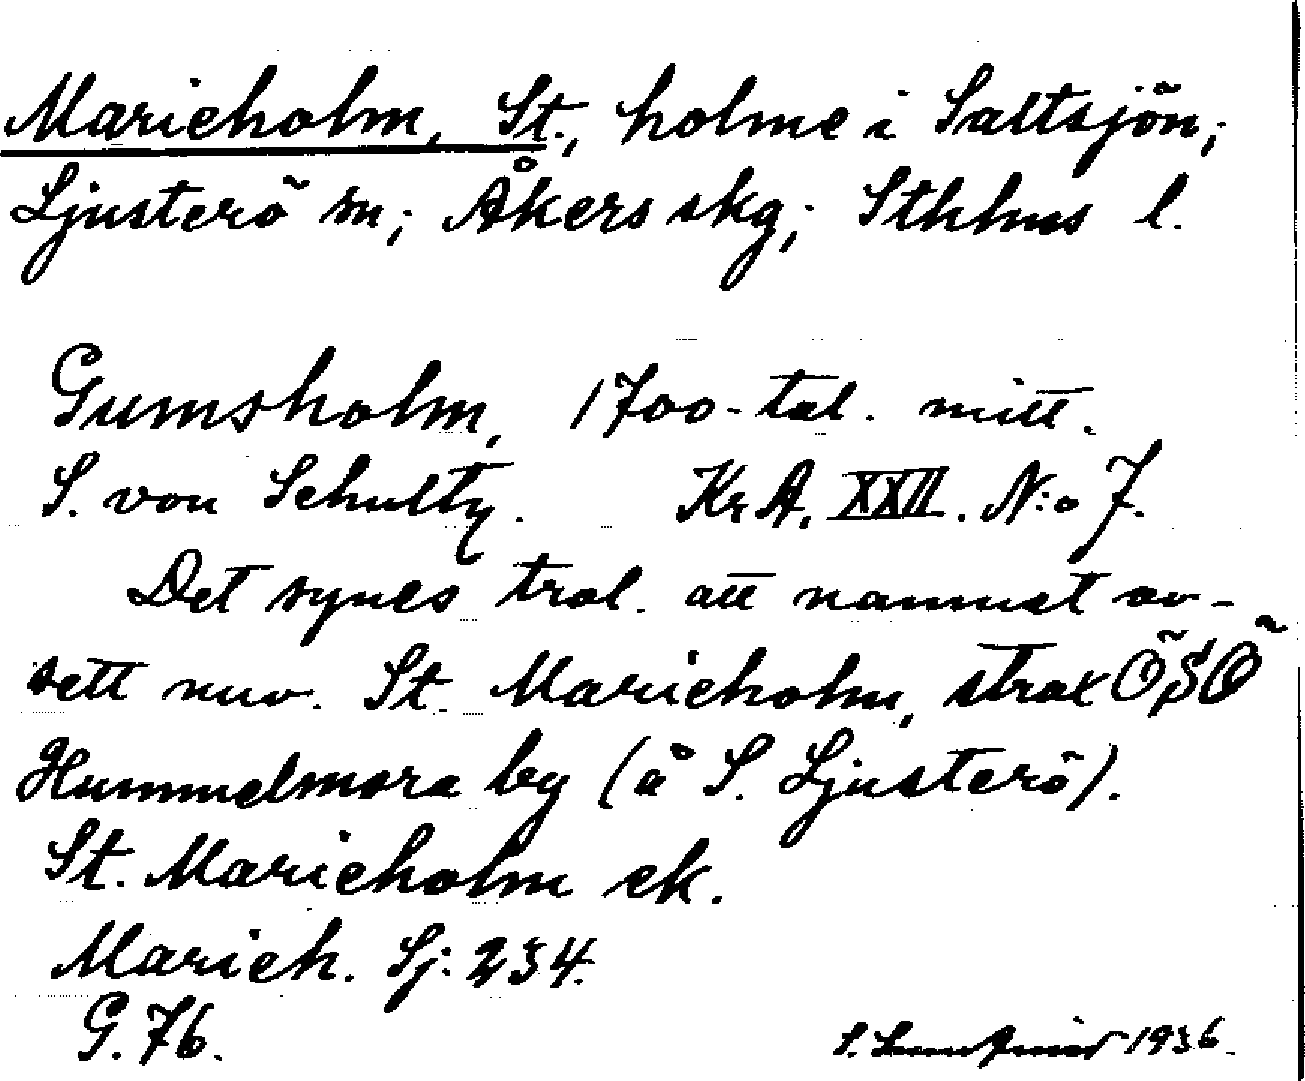 Marieholm, St., holme i Saltsjön,
Ljusterö sn; Åkers skg; Sthlms l.
Gumsholm, 1700-tal. mitt.
S. von Schultz. Kr A. XXII. N:o 7.
Det synes trol. att namnet av-
sett nuv. St. Marieholm, strax ÖSÖ
Hummelmora by (å S. Ljusterö).
St. Marieholm ek.
Marieh. Sj: 234.
G. 76.
S. 1936.